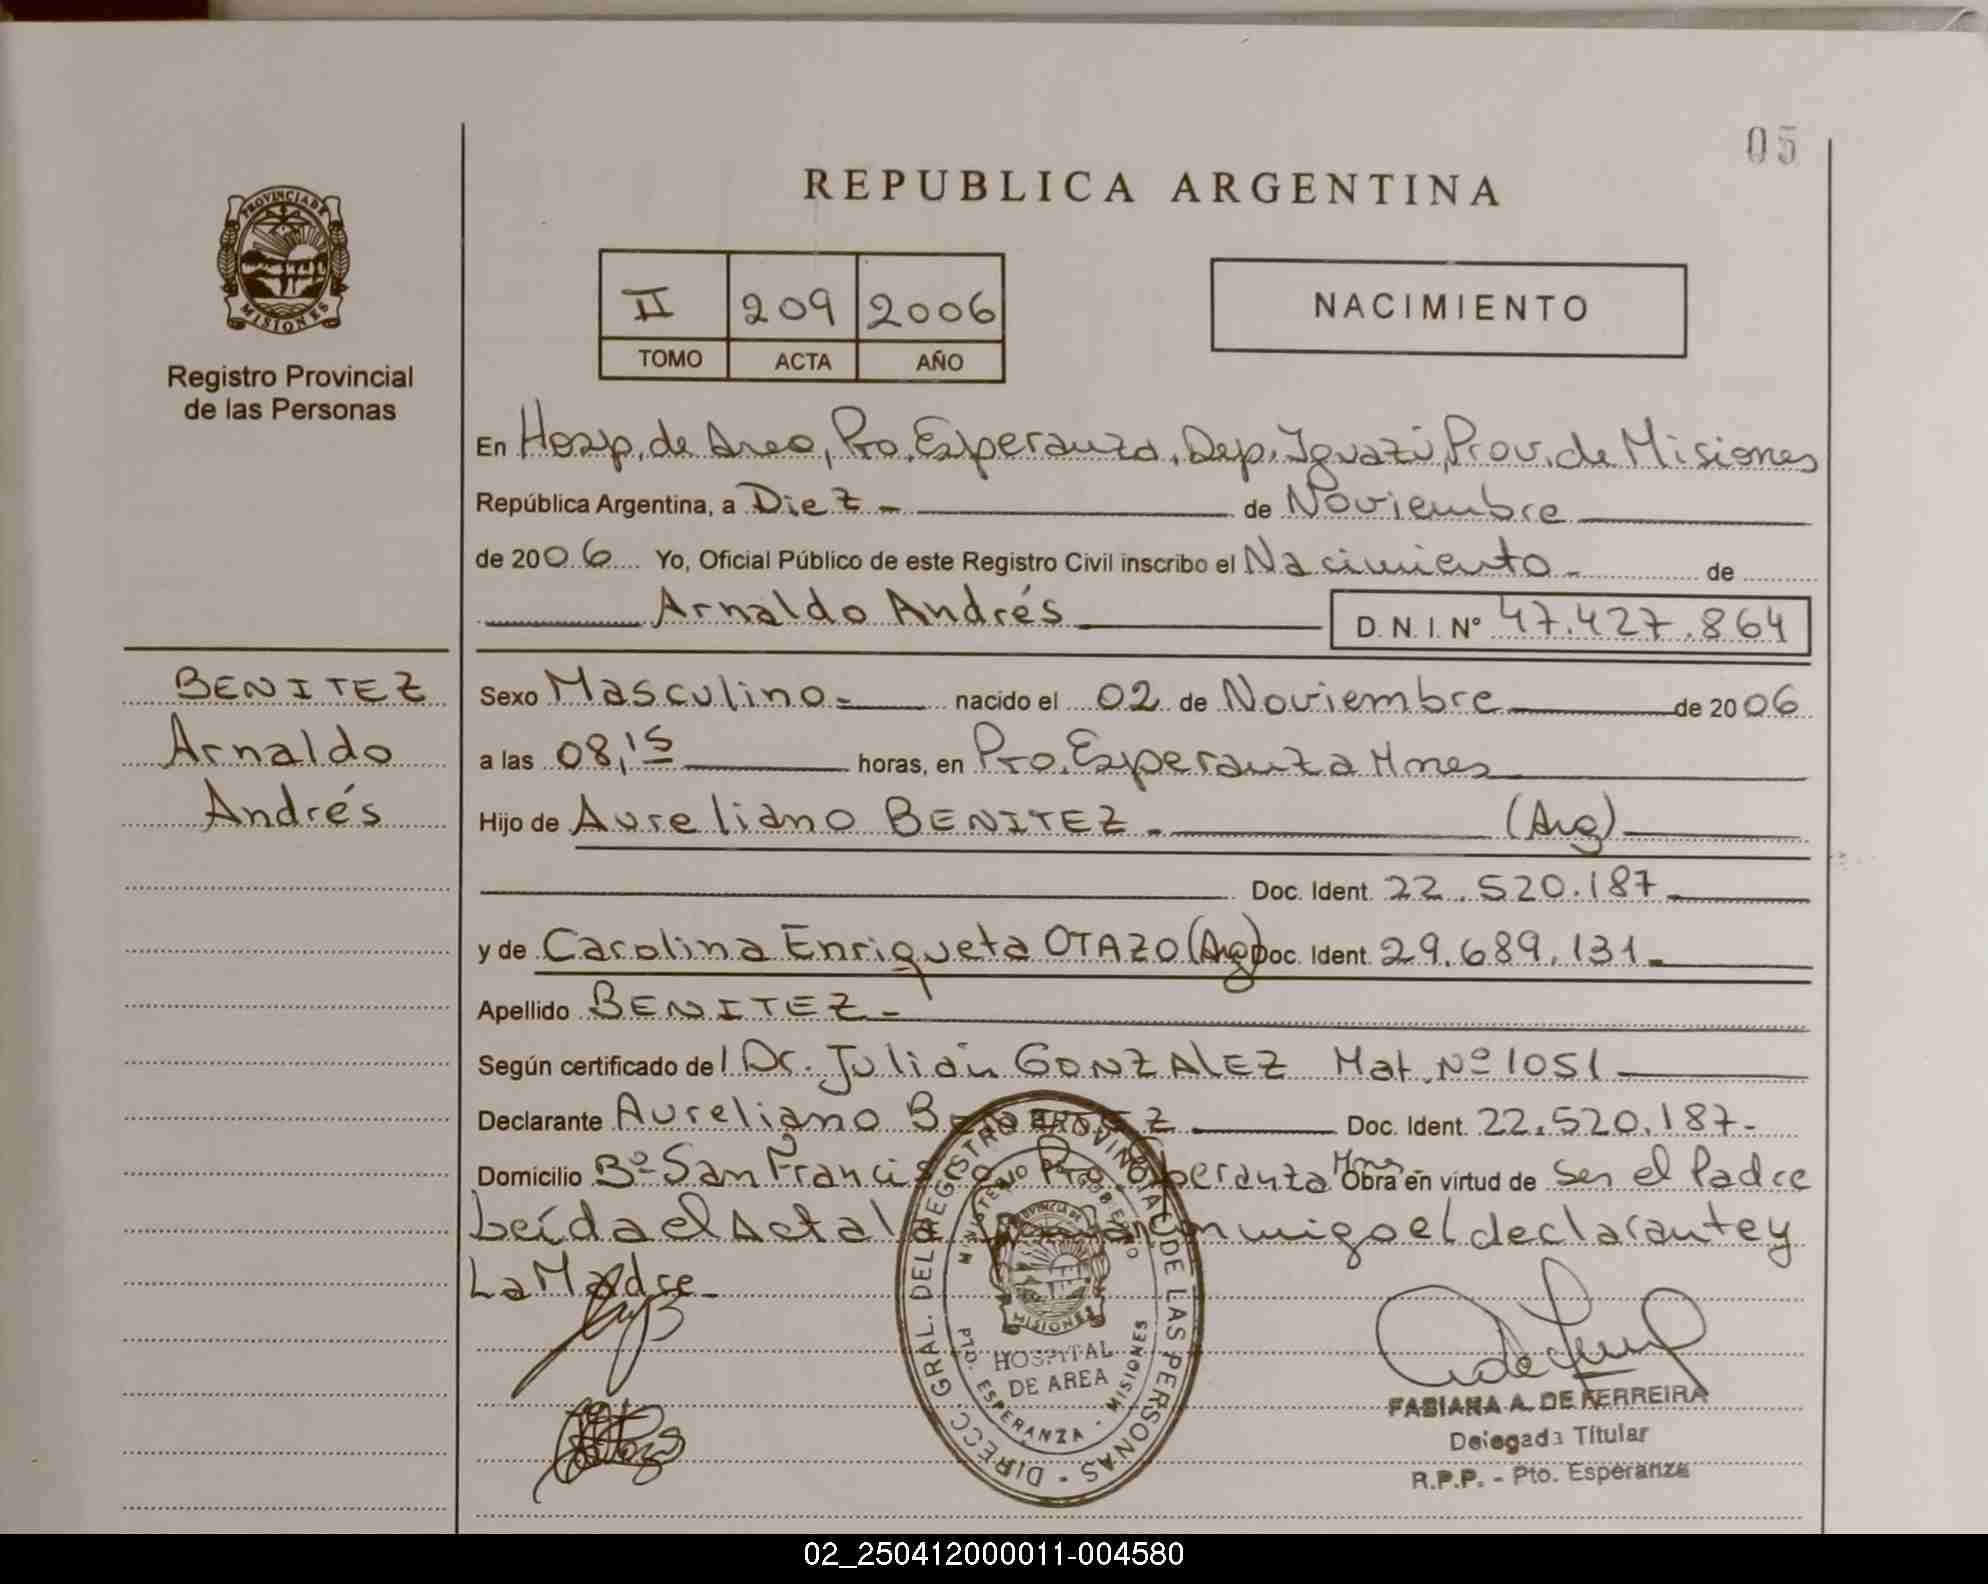 05
REPUBLICA ARGENTINA
PROVINCIA DE
MISIONES
Registro Provincial
de las Personas
II 209 2006
TOMO ACTA AÑO
NACIMIENTO
En Hosp. de Area, Pto. Esperanza, Dep. Iguazú, Prov. de Misiones
República Argentina, a Diez - de Noviembre
de 2006 Yo, Oficial Público de este Registro Civil inscribo el Nacimiento - de
Arnaldo Andrés D. N. I. Nº 47.427.864
BENITEZ
Arnaldo
Andrés
Sexo Masculino - nacido el 02 de Noviembre de 2006
a las 08,15 horas, en Pto. Esperanza Mnes
Hijo de Aureliano BENITEZ - (Arg)
Doc. Ident. 22.520.187
y de Carolina Enriqueta OTAZO (Arg) Doc. Ident. 29.689.131 -
Apellido BENITEZ -
Según certificado del Dr. Julián GONZALEZ Mat. Nº 1051
Declarante Aureliano BENITEZ Doc. Ident. 22.520.187 -
Domicilio Bº San Francisco Pto. Esperanza Mnes - Obra en virtud de Ser el Padre
Leída el Acta la conmigo el declarante y
La Madre -
DIRECC. GRAL. DEL REGISTRO PROVINCIAL DE LAS PERSONAS -
MINISTERIO DE GOBIERNO
PROVINCIA DE
MISIONES
HOSPITAL
DE AREA
PTO. ESPERANZA - MISIONES
FABIANA A. DE FERREIRA
Delegada Titular
R.P.P. - Pto. Esperanza
02_250412000011-004580